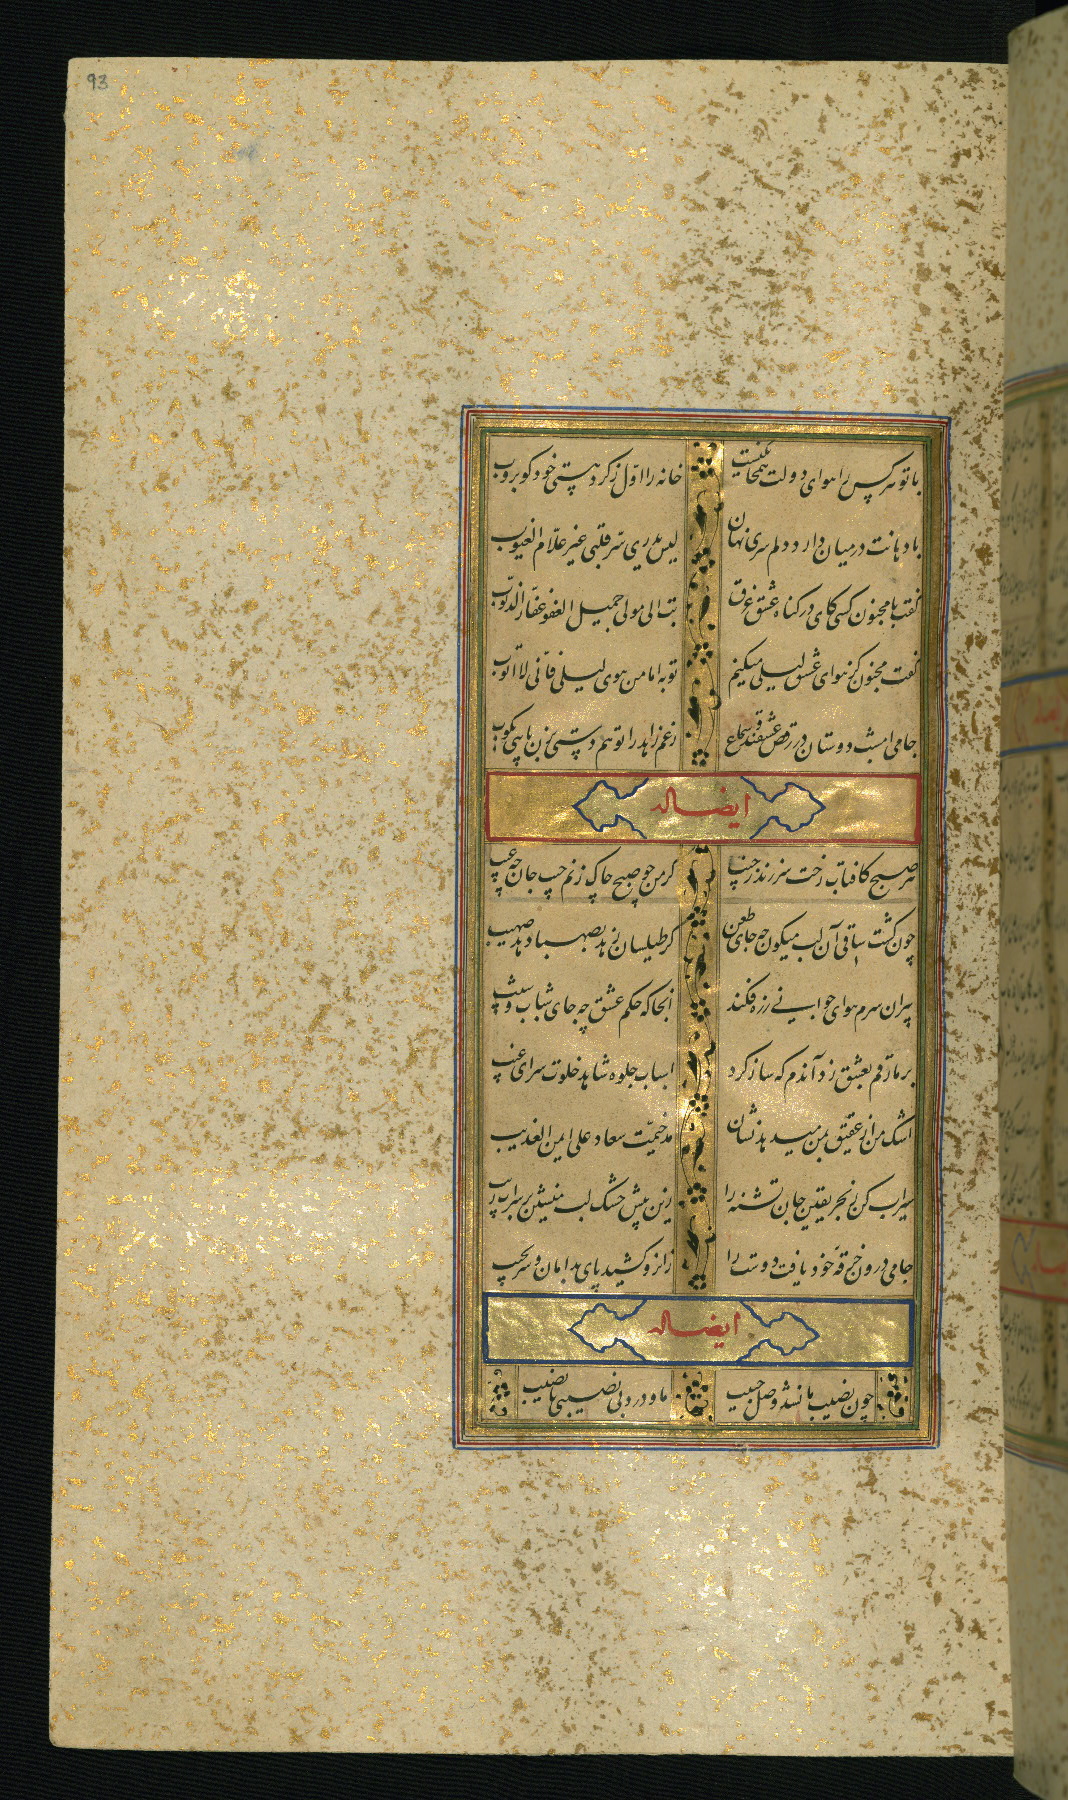 93
با تو هر کس را هوای دولت همخانگیست خانه را اول ز کرد هستی خود کو بروب
با دهانت در میان دارد دلم سری نهان لیس یدری سر قلبی غیر علام الغیوب
گفت با مجنون کسی کای در گناه عشق غرق تب الی مولی جمیل العفو غفار الذنوب
گفت مجنون کز هوای عشق لیلی میکنم توبه اما من هوی لیلی فانی لا اتوب
جامی امشب دوستان در رقص عشقند و سماع رغم زاهد را تو هم دستی بزن پایی بکوب
ایضا له
هر صبح کافتاب رخت سر زند ز جیب گر من چو صبح چاک زنم جیب جان چه عیب
چون گشت ساقی آن لب میگون چه جای طعن گر طیلسان زهد بصهبا دهد صهیب
پیران سرم هوای جوانی ز ره فکند آنجا که حکم عشق چه جای شباب و شیب
بر ما رقم بعشق زد آندم که ساز کرد اسباب جلوه شاهد خلوت سرای غیب
اشک من از عقیق یمن میدهد نشان مذ خیمت سعاد علی ایمن العذیب
سیراب کن ز بحر یقین جان تشنه را زین پیش خشک لب منشین بر سراب ریب
جامی درون خرقه خود یافت دوست را زانرو کشید پای بدامان و سر بجیب
ایضا له
چون نصیب ما نشد وصل حبیب ما و درد بی نصیبی یا نصیب